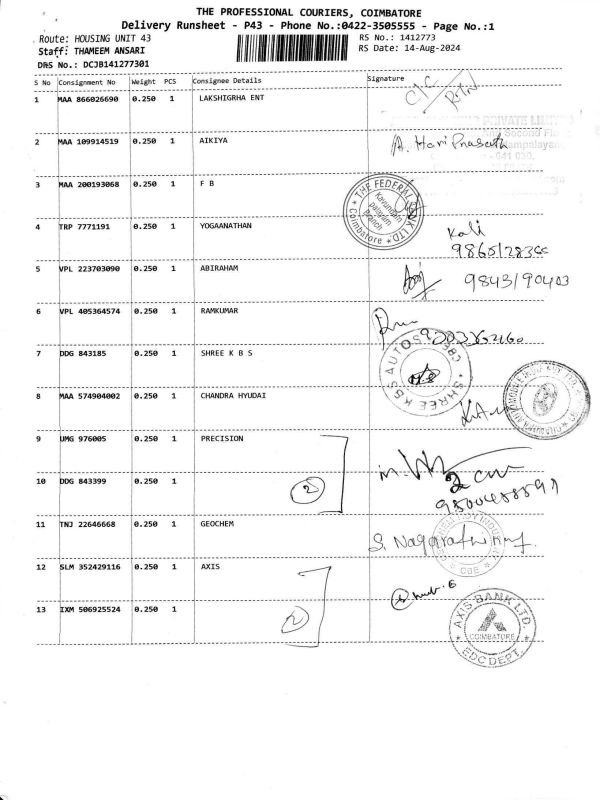 THE PROFESSIONAL COURIERS, COIMBATORE
Delivery Runsheet - P43 - Phone No.:0422-3505555 - Page No.:1
Route: HOUSING UNIT 43 RS No.: 1412773
Staff: THAMEEM ANSARI RS Date: 14-Aug-2024
DRS No.: DCJB141277301
S No Consignment No Weight PCS Consignee Details Signature
1 MAA 866026690 0.250 1 LAKSHIGRHA ENT C/C
PRIVATE LIMITED
Second Floor
2 MAA 109914519 0.250 1 AIKIYA A. Hari Prasath
- 641 030.
3 MAA 200193068 0.250 1 F B
THE FEDERAL BANK LTD. Coimbatore
Branch
4 TRP 7771191 0.250 1 YOGAANATHAN Kali
5 VPL 223703090 0.250 1 ABIRAHAM
6 VPL 405364574 0.250 1 RAMKUMAR
7 DDG 843185 0.250 1 SHREE K B S
SHREE KBS AUTOS CBE
8 MAA 574904002 0.250 1 CHANDRA HYUDAI
9 UMG 976005 0.250 1 PRECISION
10 DDG 843399 0.250 1 2
11 TNJ 22646668 0.250 1 GEOCHEM
CBE
12 SLM 352429116 0.250 1 AXIS
13 IXM 506925524 0.250 1 2
AXIS BANK LTD.
COIMBATORE
EDC DEPT.